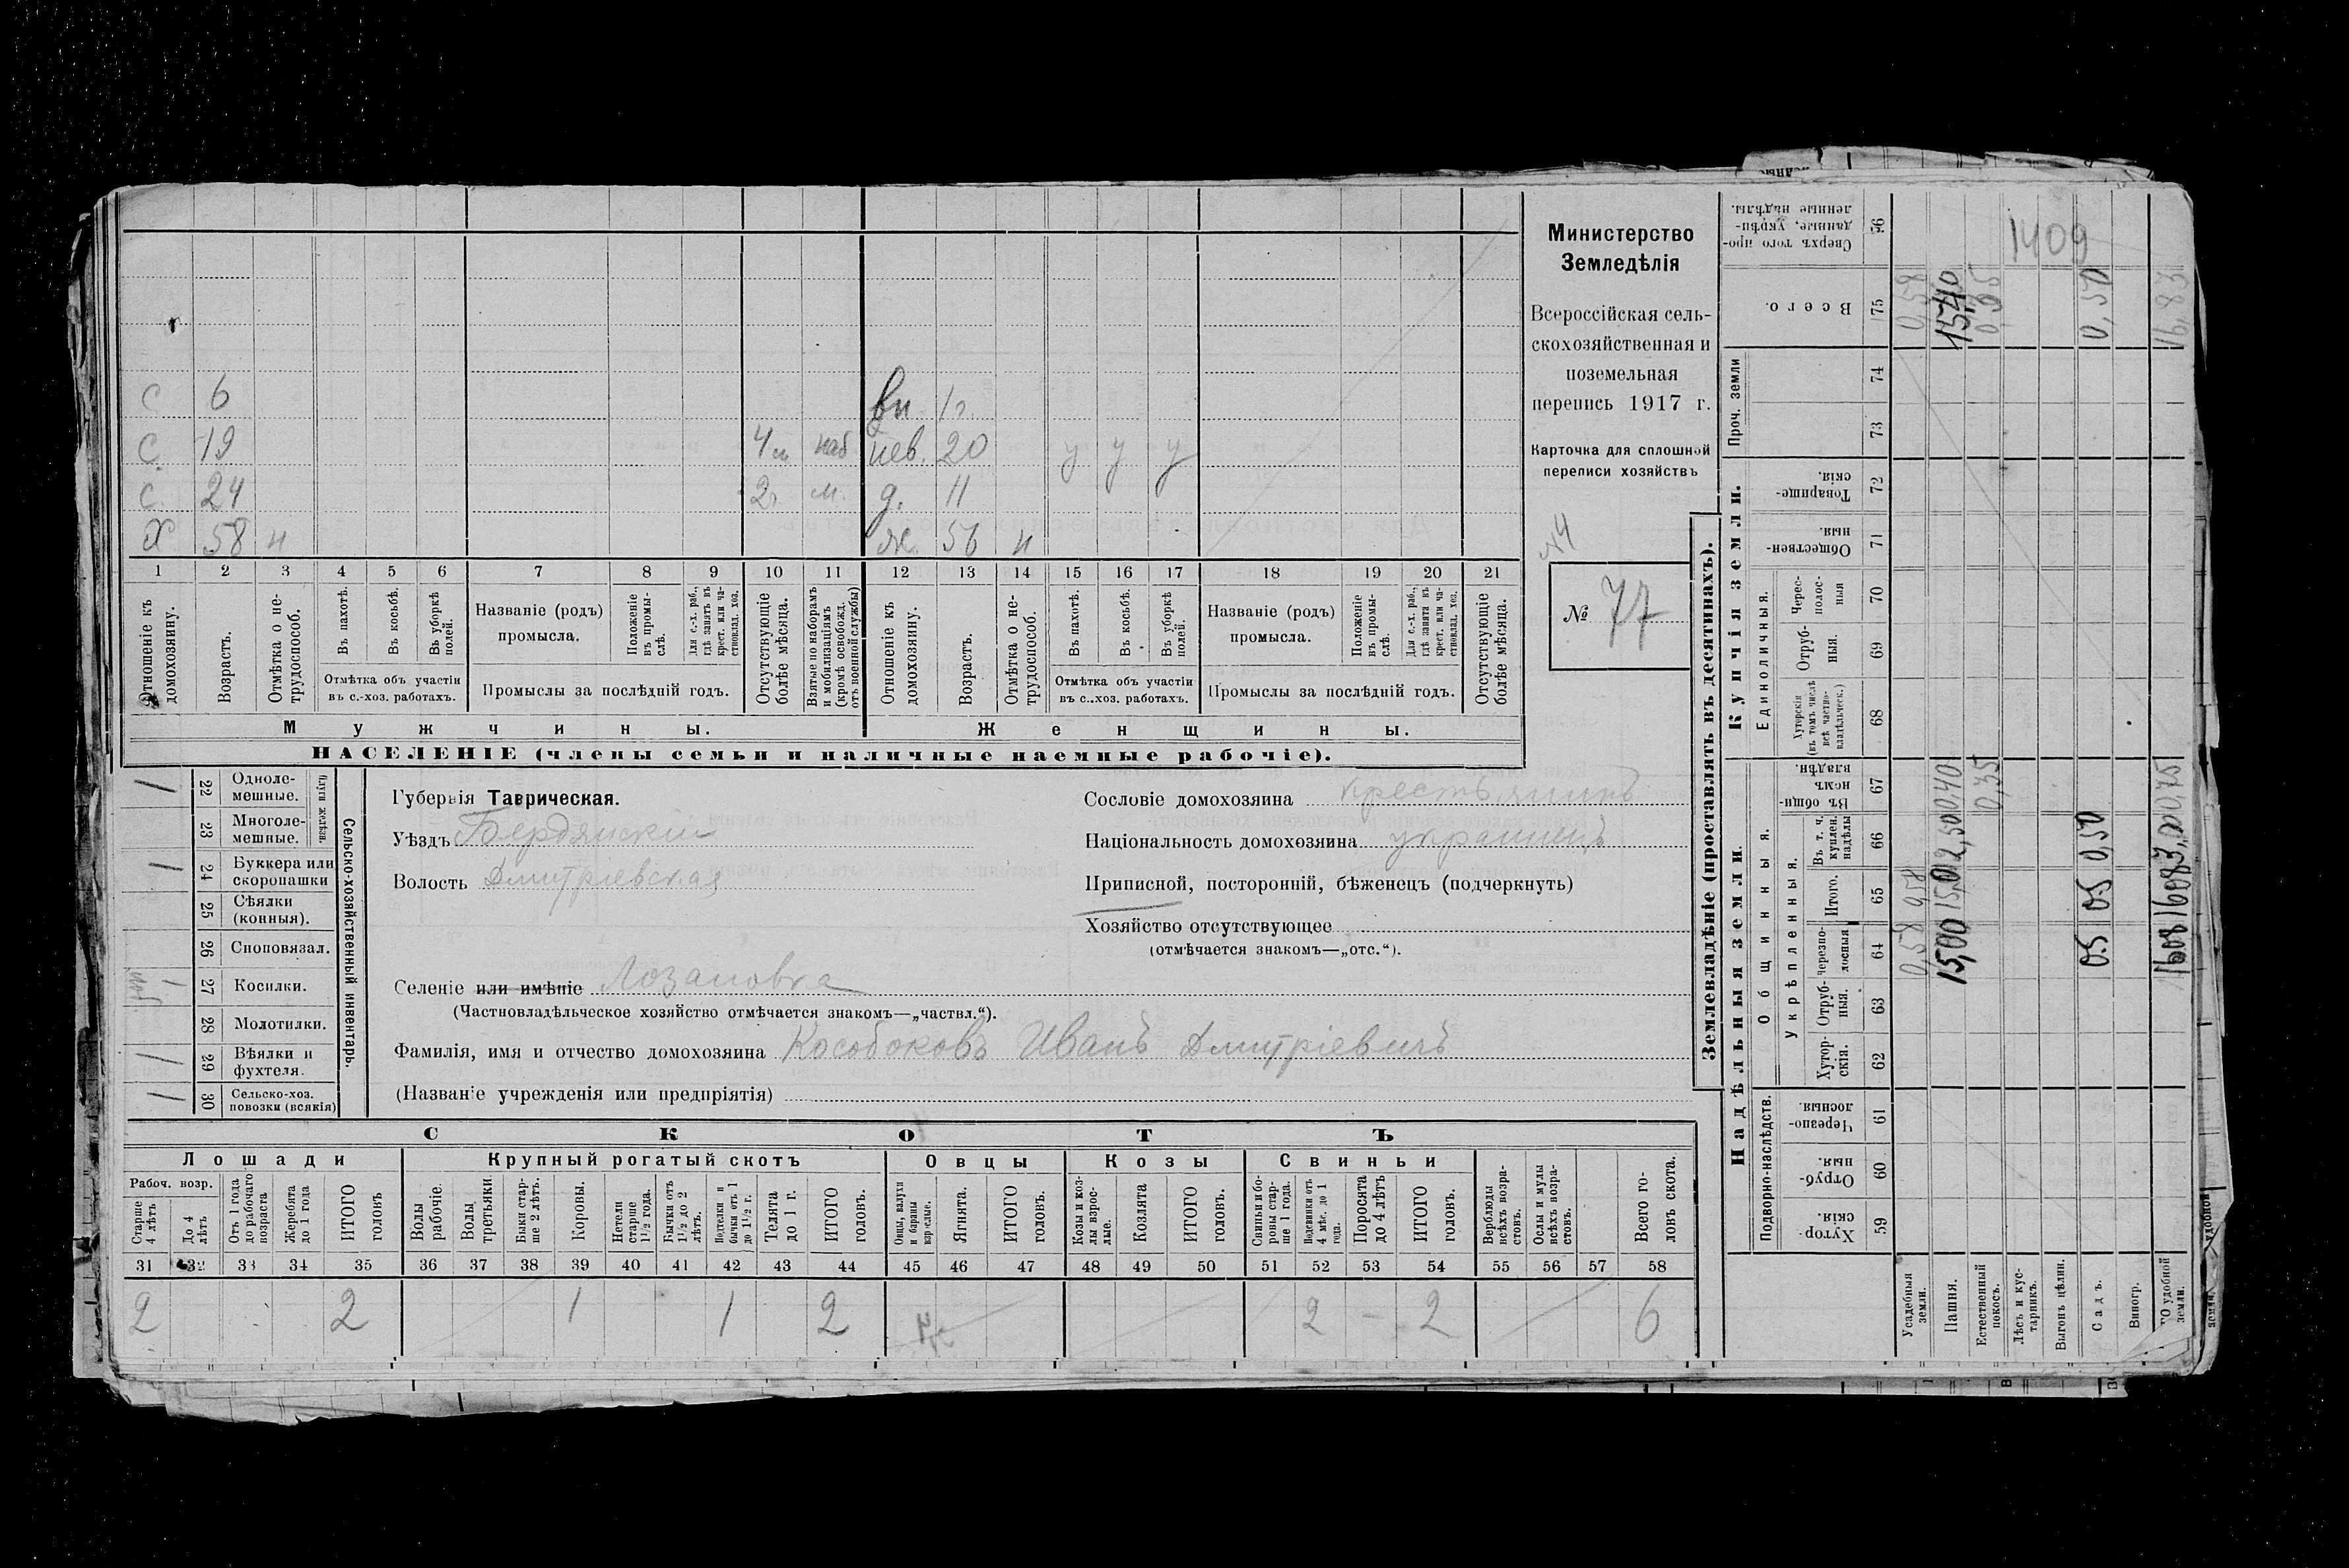 Министерство
Земледѣлія
Всероссійская сель-
скохозяйственная и
поземельная
перепись 1917 г.
Карточка для сплошной
переписи хозяйствъ
№ 77
с 6
вн. 1г
с. 19 4м наб
нев. 20 у у у
с. 24 2г. м.
д. 11
Х 58 н
ж. 56 н
1 2 3 4 5 6 7 8 9 10 11 12 13 14 15 16 17 18 19 20 21
Отношеніе къ домохозяину.
Возрастъ.
Отмѣтка о не-трудоспособ.
Въ пахотѣ.
Въ косьбѣ.
Въ уборкѣ полей.
Отмѣтка объ участіи
въ с.-хоз. работахъ.
Названіе (родъ)
промысла.
Положеніе въ промы-слѣ.
Для с.-х. раб., гдѣ занятъ въ крест. или ча-стновлад. хоз.
Промыслы за послѣдній годъ.
Отсутствующіе болѣе мѣсяца.
Взятые по наборамъ и мобилизаціямъ (кромѣ освобожд. отъ военной службы)
Отношеніе къ домохозяину.
Возрастъ.
Отмѣтка о не-трудоспособ.
Въ пахотѣ.
Въ косьбѣ.
Въ уборкѣ полей.
Отмѣтка объ участіи
въ с..хоз. работахъ.
Названіе (родъ)
промысла.
Положеніе въ промы-слѣ.
Для с.-х. раб., гдѣ занята въ крест. или ча-стновлад. хоз.
Промыслы за послѣдній годъ.
Отсутствующіе болѣе мѣсяца.
Мужчины.
Женщины.
НАСЕЛЕНІЕ (члены семьи и наличные наемные рабочіе).
Сельско-хозяйственный инвентарь.
Плуги желѣзн.
1 22 Одноле-мешные.
23 Многоле-мешные.
1 24 Буккера или скоропашки
25 Сѣялки (конныя).
26 Сноповязал.
1 27 Косилки.
28 Молотилки.
1 29 Вѣялки и фухтеля.
1 30 Сельско-хоз. повозки (всякія)
Губернія Таврическая.
Уѣздъ Бердянскій
Волость Дмитріевская
Сословіе домохозяина крестьянинъ
Національность домохозяина украинецъ
Приписной, посторонній, бѣженецъ (подчеркнуть)
Хозяйство отсутствующее
(отмѣчается знакомъ—„отс.“).
Селеніе или имѣніе Лозановка
(Частновладѣльческое хозяйство отмѣчается знакомъ—„частвл.“).
Фамилія, имя и отчество домохозяина Кособоковъ Иванъ Дмитріевичъ
(Названіе учрежденія или предпріятія)
СКОТЪ
Лошади
Крупный рогатый скотъ
Овцы
Козы
Свиньи
Рабоч. возр.
Старше 4 лѣтъ
До 4 лѣтъ
Отъ 1 года до рабочаго возраста
Жеребята до 1 года
ИТОГО головъ
Волы рабочіе.
Волы третьяки.
Быки стар-ше 2 лѣтъ.
Коровы.
Нетели старше 1½ года.
Бычки отъ 1½ до 2 лѣтъ.
Подтелки и бычки отъ 1 до 1½ г.
Телята до 1 г.
ИТОГО головъ.
Овцы, валухи и бараны взрослые.
Ягнята.
ИТОГО головъ.
Козы и коз-лы взрос-лые.
Козлята
ИТОГО головъ.
Свиньи и бо-ровы стар-ше 1 года.
Подсвинки отъ 4 мѣс. до 1 года.
Поросята до 4 лѣтъ
ИТОГО головъ.
Верблюды всѣхъ возра-стовъ.
Ослы и мулы всѣхъ возра-стовъ.
Всего го-ловъ скота.
31 32 33 34 35 36 37 38 39 40 41 42 43 44 45 46 47 48 49 50 51 52 53 54 55 56 57 58
2 2 1 1 2 2 - 2 6
Землевладѣніе (проставлять въ десятинахъ).
Надѣльныя земли.
Купчія земли.
Подворно-наслѣдств.
Общинныя.
Укрѣпленныя.
Единоличныя.
Проч. земли
Хутор-скія. 59
Отруб-ныя. 60
Черезпо-лосныя. 61
Хутор-скія. 62
Отруб-ныя. 63
Черезпо-лосныя 64
Итого. 65
Въ т. ч. куплен. надѣлы 66
Въ общин-номъ владѣн. 67
Хуторскія (въ томъ числѣ всѣ частно-владѣльческ.) 68
Отруб-ныя. 69
Черес-полос-ныя 70
Обществен-ныя. 71
Товарище-скія. 72
73
74
Всего. 75
Сверхъ того про-данные, укрѣп-ленные надѣлы. 56
1409
Усадебныя земли. 0,58 0,58 0,58
Пашня. 15,00 15,0 2,50 0,40 15,40
Естественный покосъ. 0,35 0,35
Лѣсъ и кус-тарникъ.
Выгонъ цѣлин.
Садъ. 05 05 0,50 0,50
Виногр.
ГО удобной земли. 1608 1608 3,00 0,75 16,83